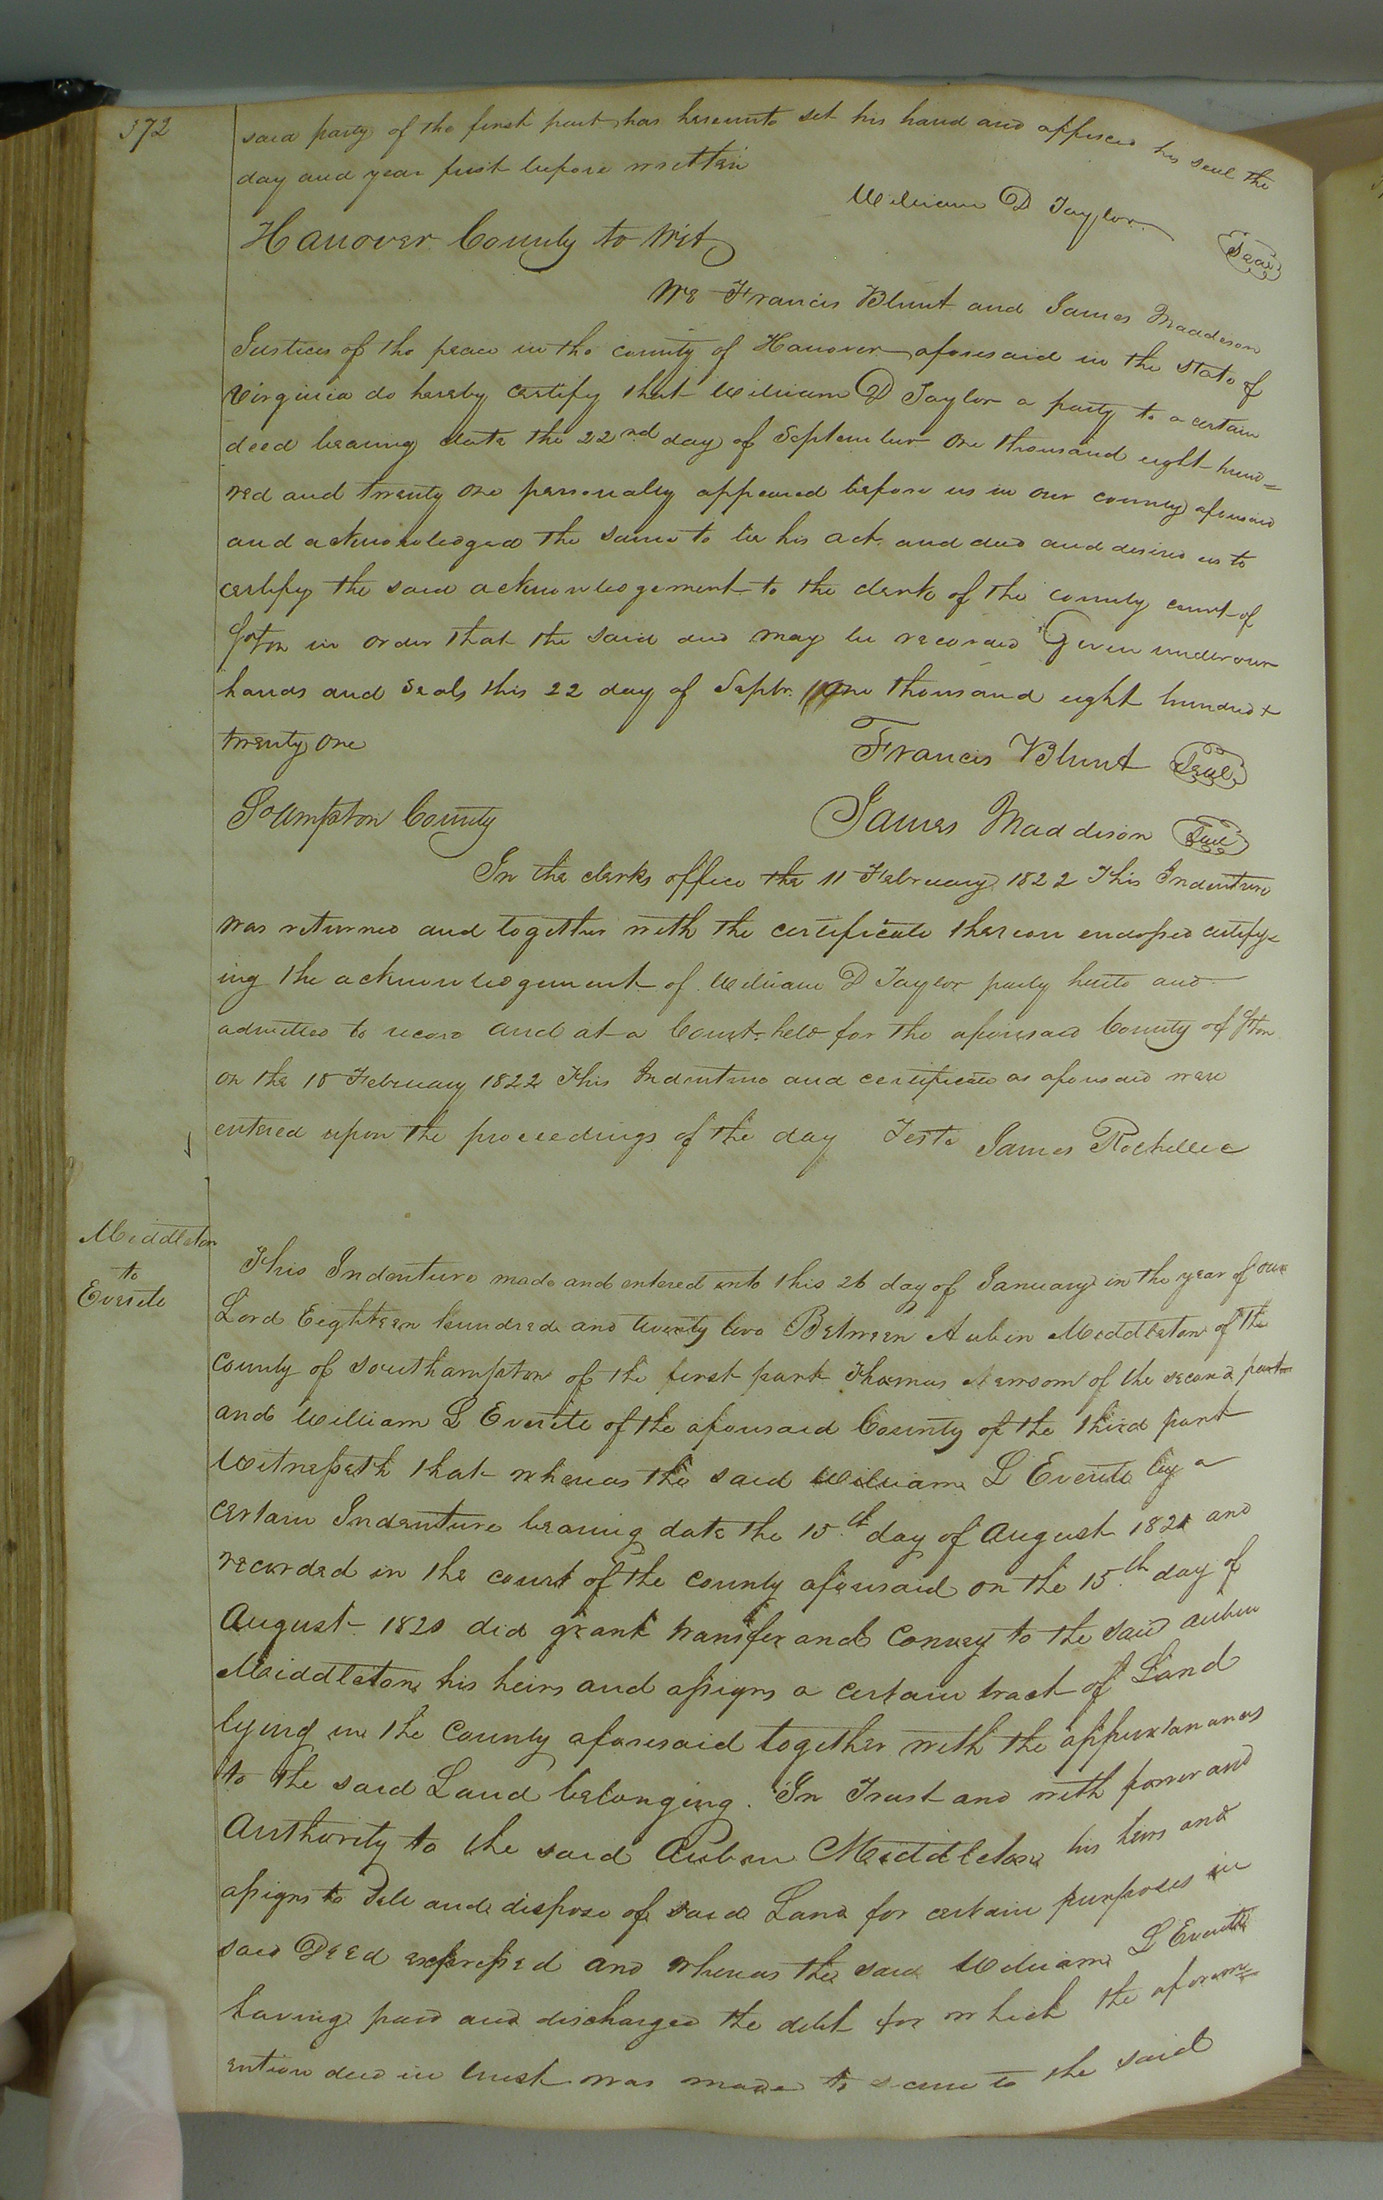 372
said party of the first part has hereunto set his hand and affixed his seal the
day and year first before written
William D Taylor Seal
Hanover County to wit,
We Francis Blunt and James Maddison
Justices of the peace in the county of Hanover aforesaid in the State of
Virginia do hereby certify that William D Taylor a party to a certain
deed bearing date the 22nd day of September one thousand eight hund=
red and twenty one personally appeared before us in our county aforesaid
and acknowledged the same to be his act and deed and desired us to
certify the said acknowledgement to the clerk of the county court of
Spton in order that the said deed may be recorded Given under our
hands and seals this 22 day of Septbr. One thousand eight hundred &
twenty one
Francis Blunt Seal
James Maddison Seal
Soampton County
In the clerks office the 11 February 1822 This Indenture
was returned and together with the certificate thereon endorsed certify=
ing the acknowledgement of William D Taylor party hereto and
admitted to record and at a Court held for the aforesaid County of Spton
on the 18 February 1822 This Indenture and certificate as aforesaid were
entered upon the proceedings of the day Teste James Rochelle c
Middleton
to
Everite
This Indenture made and entered into this 26 day of January in the year of our
Lord Eighteen hundred and twenty two Between Aubin Middleton of the
County of Southampton of the first part Thomas Newsom of the second part
and William L Everite of the aforesaid County of the third part
Witnesseth that whereas the said William L Everite by a
certain Indenture bearing date the 15th day of August 1820 and
recorded in the court of the county aforesaid on the 15th day of
August 1820 did grant transfer and Convey to the said Aubin
Middleton his heirs and assigns a certain tract of Land
lying in the County aforesaid together with the appurtanances
to the said Land belonging. In Trust and with power and
Authority to the said Aubin Middleton his heirs and
assigns to Sell and dispose of said Land for certain purposes in
said Deed expressed and whereas the said William L Everite
having paid and discharged the debt for which the aforem=
ention deed in trust was made to secure to the said